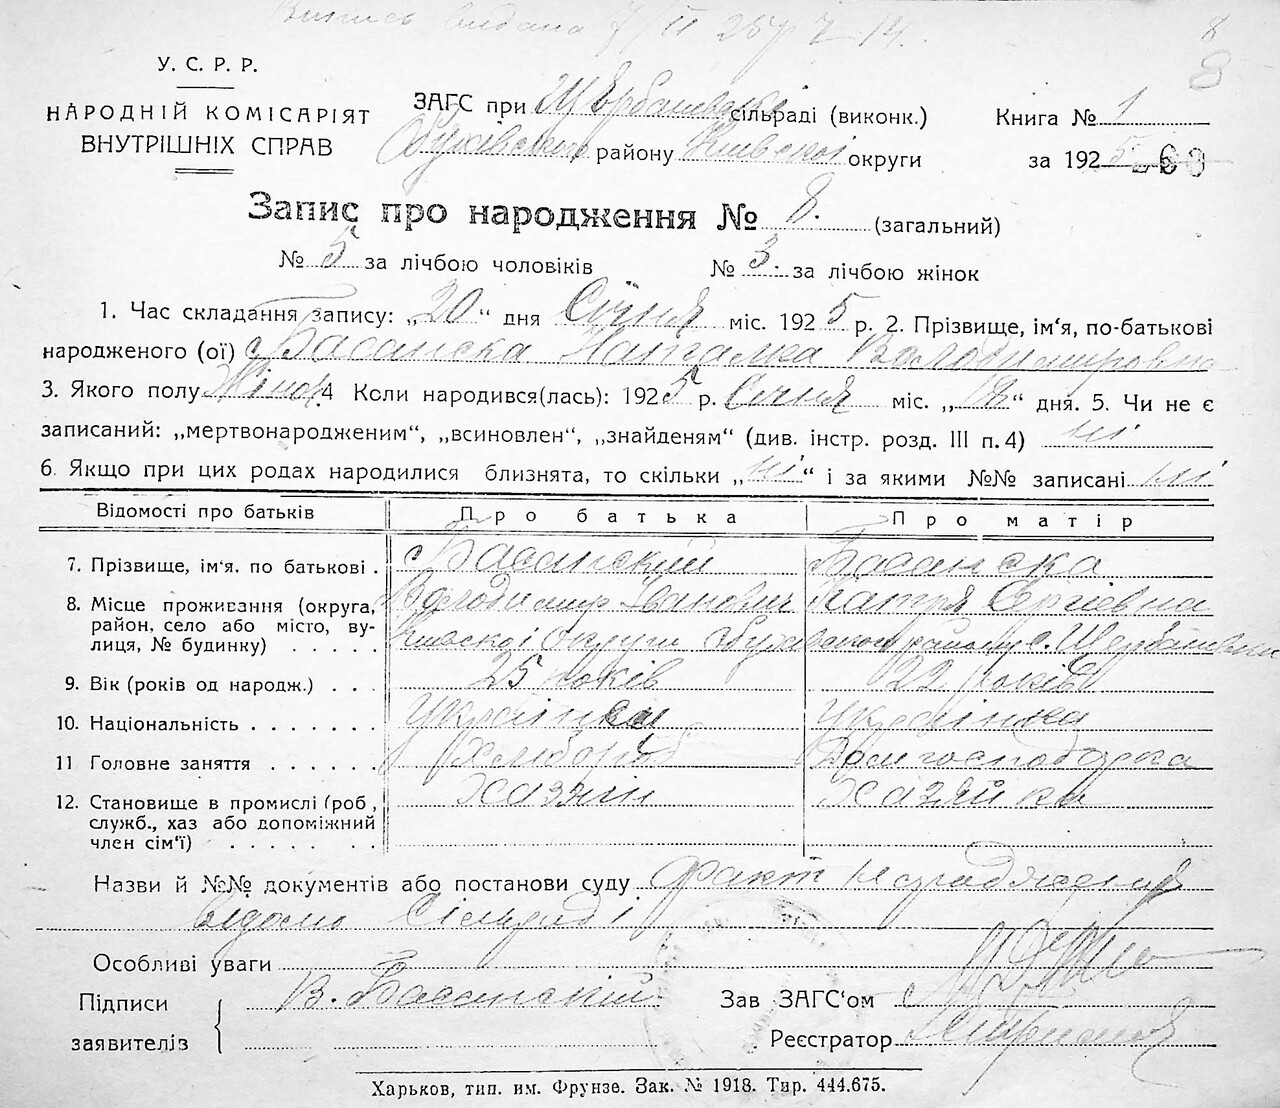 Випись видана 7/II
8
8
У. С. Р. Р.
НАРОДНІЙ КОМІСАРІЯТ
ВНУТРІШНІХ СПРАВ
ЗАГС при Щербанівські сільраді (виконк.)
Обухівського району Київскоі округи
Книга № 1
за 1925 60
Запис про народження № 8. (загальний)
№ 5 за лічбою чоловіків № 3. за лічбою жінок
1. Час складання запису: „20“ дня Січня міс. 1925 р. 2. Прізвище, ім'я, по-батькові
народженого (ої) Басанска Наталка Володимировна
3. Якого полу Жіноч. 4 Коли народився(лась): 1925 р. Січня міс. „18“ дня. 5. Чи не є
записаний: „мертвонародженим“, „всиновлен“, „знайденям“ (див. інстр. розд. III п. 4) ні
6. Якщо при цих родах народилися близнята, то скільки „ні“ і за якими №№ записані ні
Відомості про батьків Про батька Про матір
7. Прізвище, ім'я. по батькові . Басанский Басанска
Володимир Іванович Катря Сергіевна
8. Місце проживання (округа, район, село або місто, вулиця, № будинку) . . . . . Київскоі округи Обухівского району с. Щербанівки
9. Вік (років од народж.) . . . 25 років 22 років
10. Національність . . . . . . . Українец Українка
11 Головне заняття . . . . . . Хлібороб Домгосподарка
12. Становище в промислі (роб, служб., хаз або допоміжний член сім'ї) . . . . . . . Хазяін Хазяйка
Назви й №№ документів або постанови суду факт народження
відомо Сільраді
Особливі уваги
Підписи заявителів В. Басанский
Зав ЗАГС'ом
Реєстратор
Харьков, тип. им. Фрунзе. Зак. № 1918. Тир. 444.675.